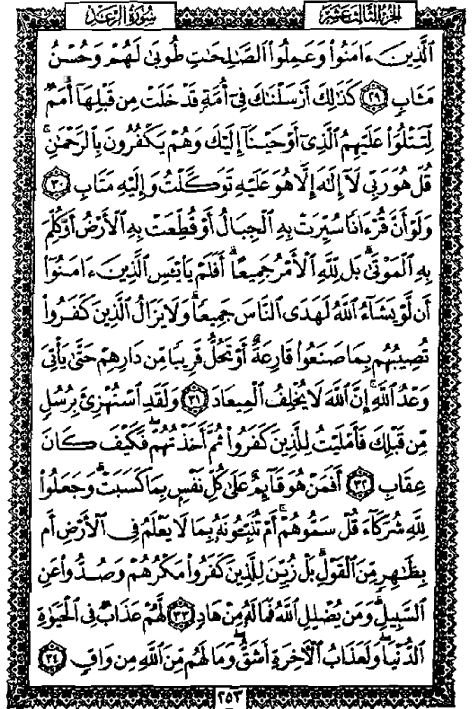 الجزء الثالث عشر
سورة الرعد
ٱلَّذِينَ ءَامَنُوا۟ وَعَمِلُوا۟ ٱلصَّـٰلِحَـٰتِ طُوبَىٰ لَهُمْ وَحُسْنُ
مَـَٔابٍ ٢٩ كَذَٰلِكَ أَرْسَلْنَـٰكَ فِىٓ أُمَّةٍ قَدْ خَلَتْ مِن قَبْلِهَآ أُمَمٌ
لِّتَتْلُوَا۟ عَلَيْهِمُ ٱلَّذِىٓ أَوْحَيْنَآ إِلَيْكَ وَهُمْ يَكْفُرُونَ بِٱلرَّحْمَـٰنِ ۚ
قُلْ هُوَ رَبِّى لَآ إِلَـٰهَ إِلَّا هُوَ عَلَيْهِ تَوَكَّلْتُ وَإِلَيْهِ مَتَابِ ٣٠
وَلَوْ أَنَّ قُرْءَانًا سُيِّرَتْ بِهِ ٱلْجِبَالُ أَوْ قُطِّعَتْ بِهِ ٱلْأَرْضُ أَوْ كُلِّمَ
بِهِ ٱلْمَوْتَىٰ ۗ بَل لِّلَّهِ ٱلْأَمْرُ جَمِيعًا ۗ أَفَلَمْ يَا۟يْـَٔسِ ٱلَّذِينَ ءَامَنُوٓا۟
أَن لَّوْ يَشَآءُ ٱللَّهُ لَهَدَى ٱلنَّاسَ جَمِيعًا ۗ وَلَا يَزَالُ ٱلَّذِينَ كَفَرُوا۟
تُصِيبُهُم بِمَا صَنَعُوا۟ قَارِعَةٌ أَوْ تَحُلُّ قَرِيبًا مِّن دَارِهِمْ حَتَّىٰ يَأْتِىَ
وَعْدُ ٱللَّهِ ۚ إِنَّ ٱللَّهَ لَا يُخْلِفُ ٱلْمِيعَادَ ٣١ وَلَقَدِ ٱسْتُهْزِئَ بِرُسُلٍ
مِّن قَبْلِكَ فَأَمْلَيْتُ لِلَّذِينَ كَفَرُوا۟ ثُمَّ أَخَذْتُهُمْ ۖ فَكَيْفَ كَانَ
عِقَابِ ٣٢ أَفَمَنْ هُوَ قَآئِمٌ عَلَىٰ كُلِّ نَفْسٍۭ بِمَا كَسَبَتْ ۗ وَجَعَلُوا۟
لِلَّهِ شُرَكَآءَ قُلْ سَمُّوهُمْ ۚ أَمْ تُنَبِّـُٔونَهُۥ بِمَا لَا يَعْلَمُ فِى ٱلْأَرْضِ أَم
بِظَـٰهِرٍ مِّنَ ٱلْقَوْلِ ۗ بَلْ زُيِّنَ لِلَّذِينَ كَفَرُوا۟ مَكْرُهُمْ وَصُدُّوا۟ عَنِ
ٱلسَّبِيلِ ۗ وَمَن يُضْلِلِ ٱللَّهُ فَمَا لَهُۥ مِنْ هَادٍ ٣٣ لَّهُمْ عَذَابٌ فِى ٱلْحَيَوٰةِ
ٱلدُّنْيَا ۖ وَلَعَذَابُ ٱلْـَٔاخِرَةِ أَشَقُّ ۖ وَمَا لَهُم مِّنَ ٱللَّهِ مِن وَاقٍ ٣٤
٢٥٣